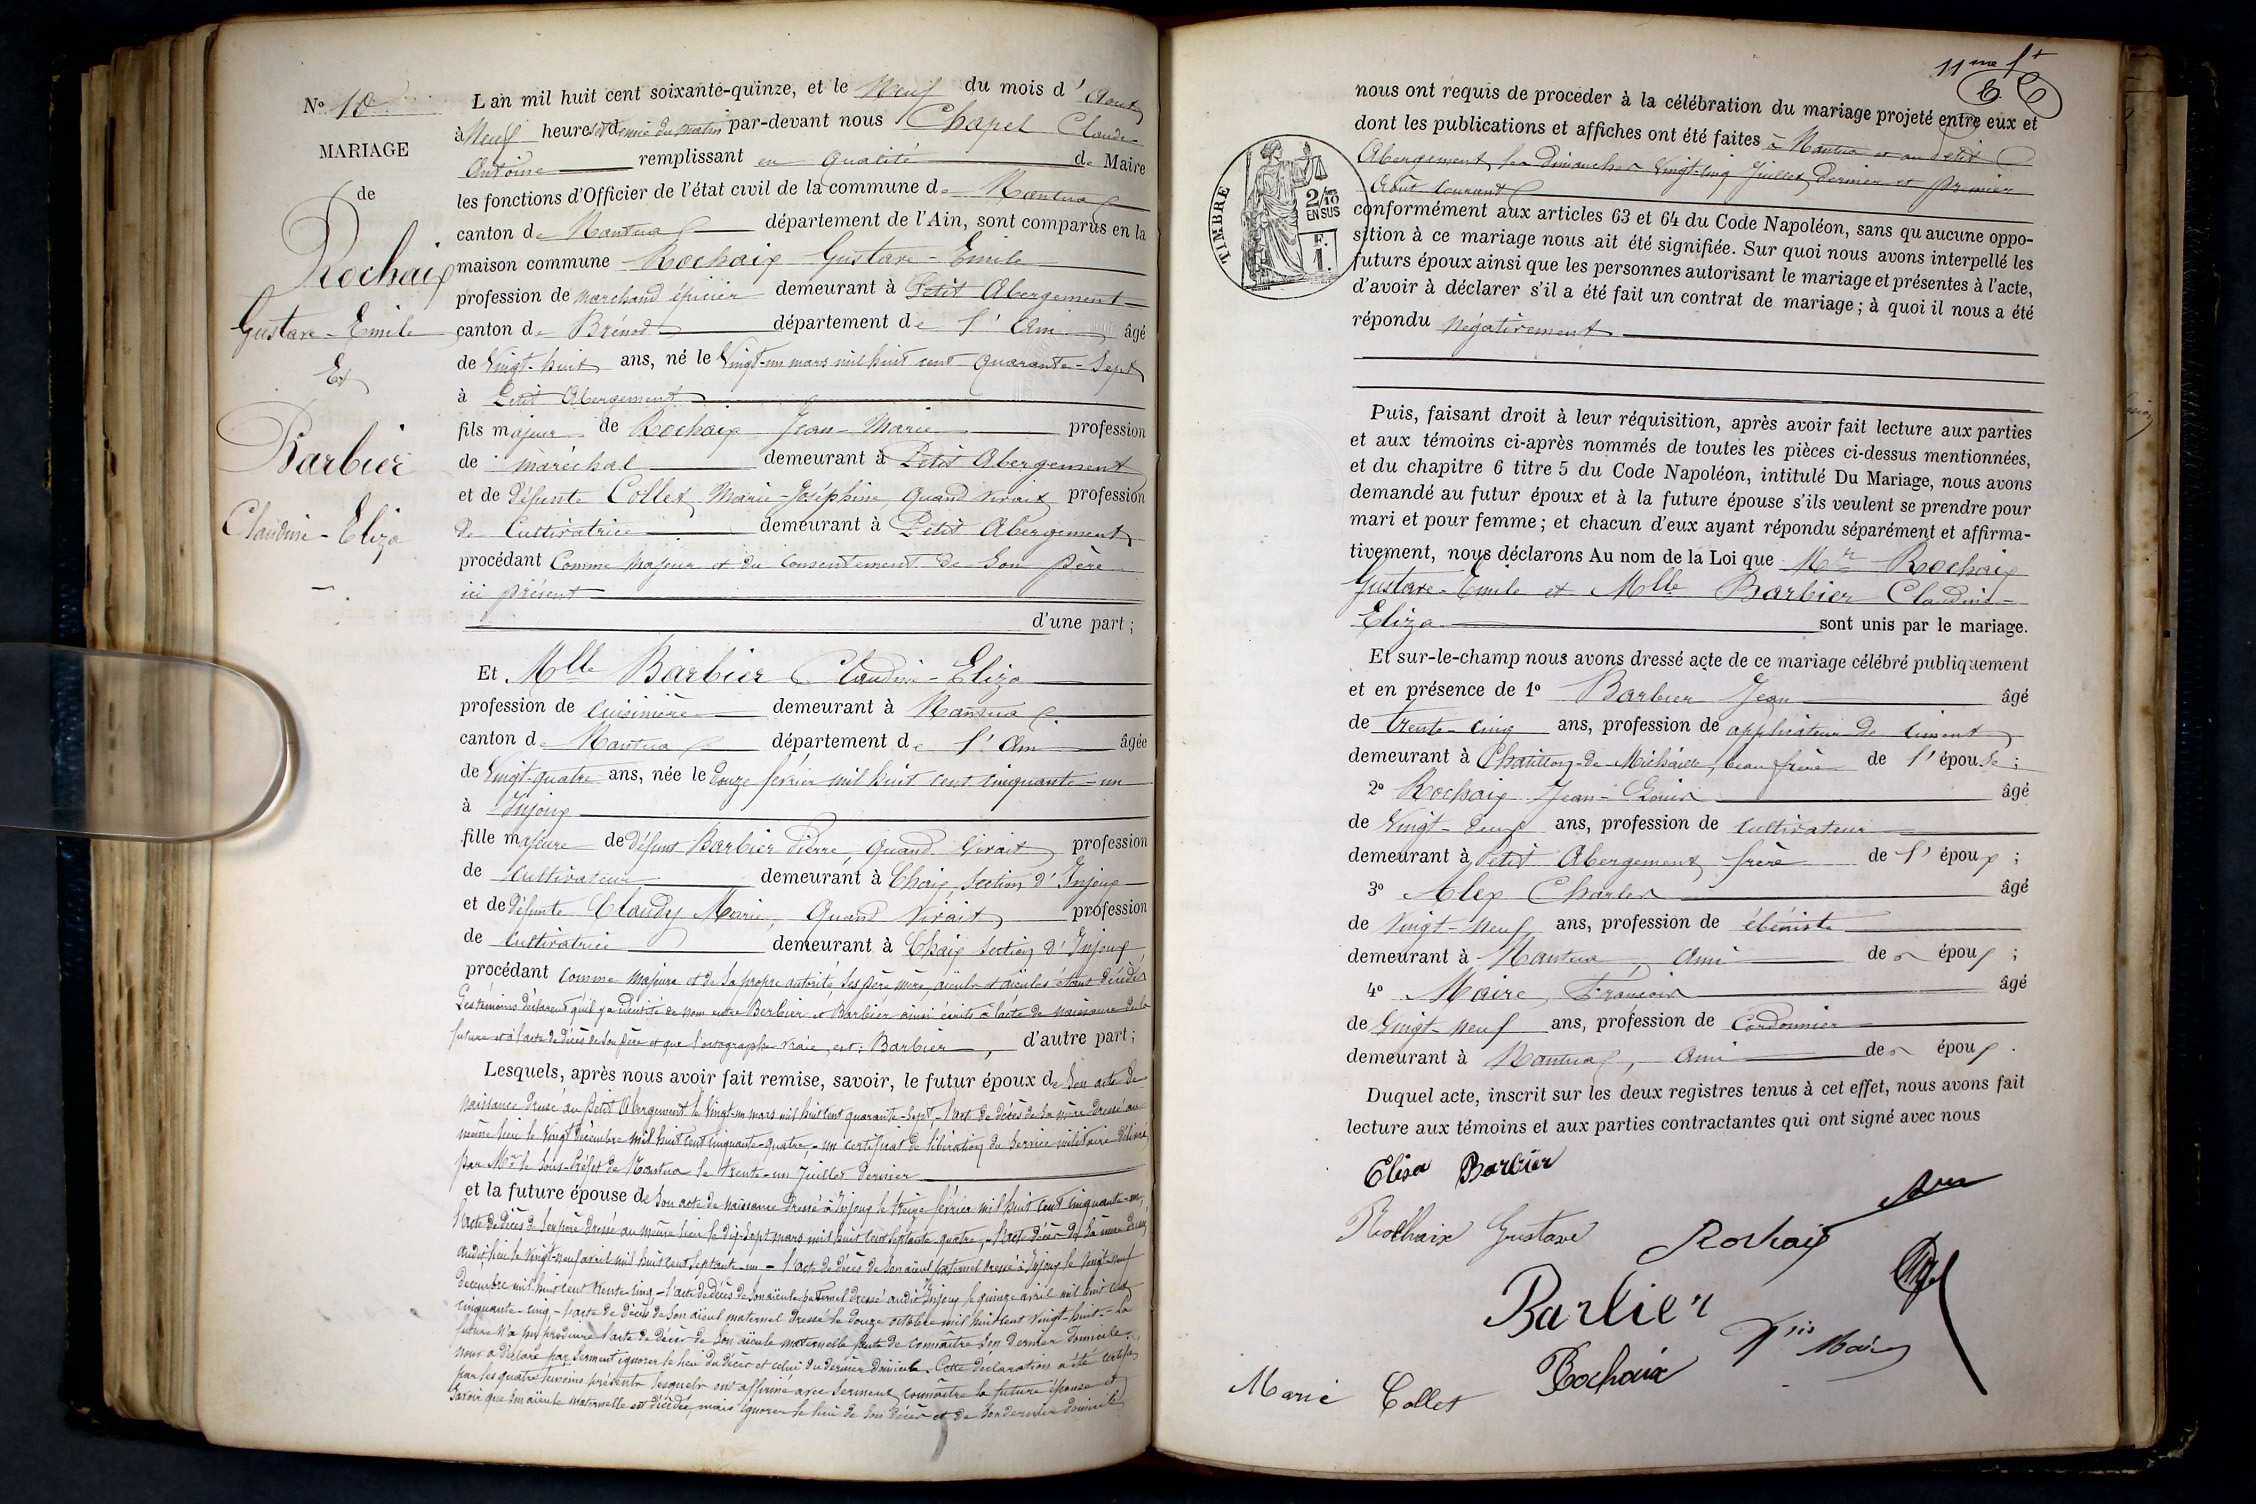 No 10
MARIAGE
de
Rochaix
Gustave-Emile
Et
Barbier
Claudine-Eliza
L'an mil huit cent soixante-quinze, et le Neuf du mois d'Aout
à Neuf heures et demie du matin par-devant nous Chapel Claude-
Antoine remplissant en qualité de Maire
les fonctions d'Officier de l'état civil de la commune de Nantua
canton de Nantua département de l'Ain, sont comparus en la
maison commune Rochaix Gustave-Emile
profession de marchand épicier demeurant à Petit Abergement
canton de Brénod département de l'Ain âgé
de Vingt-huit ans, né le Vingt-un mars mil huit cent quarante-sept
à Petit Abergement
fils majeur de Rochaix Jean-Marie profession
de maréchal demeurant à Petit Abergement
et de défunte Collet Marie-Joséphine, quand vivait profession
de Cultivatrice demeurant à Petit Abergement
procédant Comme majeur et du consentement de son père
ici présent
d'une part;
Et Mlle Barbier Claudine-Eliza
profession de Cuisinière demeurant à Nantua
canton de Nantua département de l'Ain âgée
de Vingt-quatre ans, née le douze février mil huit cent cinquante-un
à Injoux
fille majeure de défunt Barbier Pierre, quand vivait profession
de Cultivateur demeurant à Chaix section d'Injoux
et de défunte Claudy Marie, Quand vivait profession
de Cultivatrice demeurant à Chaix section d'Injoux
procédant comme majeure et de sa propre autorité, ses père, mère, aïeuls et aïeules étant décédés
Les témoins déclarent qu'il y a identité de nom entre Berbier et Barbier ainsi écrits à l'acte de naissance de la
future et à l'acte de décès de son père et que l'ortographe vraie, est: Barbier, d'autre part;
Lesquels, après nous avoir fait remise, savoir, le futur époux de son acte de
naissance dressé au Petit Abergement le Vingt-un mars mil huit cent quarante-sept, l'acte de décès de sa mère dressé au
même lieu le Vingt décembre mil huit cent cinquante-quatre, un certificat de libération du service militaire délivré
par Mr le Sous-Préfet de Nantua le trente-un juillet dernier
et la future épouse de son acte de naissance dressé à Injoux le treize février mil huit cent cinquante-un,
l'acte de décès de son père dressé au même lieu le dix-sept mars mil huit cent septante quatre, - l'acte décès de sa mère dressé
audit lieu le vingt-neuf avril mil huit cent septante-un - l'acte de décès de son aïeul paternel dressé à Injoux le vingt-neuf
décembre mil huit cent trente-cinq - l'acte de décès de son aïeule paternel dressé audit Injoux le quinze avril mil huit cent
cinquante-cinq - l'acte de décès de son aïeul maternel dressé le douze octobre mil huit cent vingt-huit - La
future n'a pu produire l'acte de décès de son aïeule maternelle faute de connaître son dernier domicile.
nous a déclaré par serment ignorer le lieu du décès et celui du dernier domicile. Cette déclaration a été certifiée
par les quatre témoins présents lesquels ont affirmé avec serment, connaître la future épouse et
savoir que son aïeule maternelle est décédée, mais ignorer le lieu de son décès et de son dernier domicile
11me ft
nous ont requis de procéder à la célébration du mariage projeté entre eux et
dont les publications et affiches ont été faites à Nantua et au Petit
Abergement les Dimanches Vingt-cinq juillet dernier et premier
Août courant
TIMBRE
2/10 EN SUS
F. 1.
conformément aux articles 63 et 64 du Code Napoléon, sans qu'aucune oppo-
sition à ce mariage nous ait été signifiée. Sur quoi nous avons interpellé les
futurs époux ainsi que les personnes autorisant le mariage et présentes à l'acte,
d'avoir à déclarer s'il a été fait un contrat de mariage; à quoi il nous a été
répondu négativement
Puis, faisant droit à leur réquisition, après avoir fait lecture aux parties
et aux témoins ci-après nommés de toutes les pièces ci-dessus mentionnées,
et du chapitre 6 titre 5 du Code Napoléon, intitulé Du Mariage, nous avons
demandé au futur époux et à la future épouse s'ils veulent se prendre pour
mari et pour femme; et chacun d'eux ayant répondu séparément et affirma-
tivement, nous déclarons Au nom de la Loi que Mr Rochaix
Gustave-Emile et Mlle Barbier Claudine-
Eliza sont unis par le mariage.
Et sur-le-champ nous avons dressé acte de ce mariage célébré publiquement
et en présence de 1o Barbier Jean âgé
de trente-cinq ans, profession de applicateur de ciment
demeurant à Chatillon-de-Michaille, beau frère de l'épouse;
2o Rochaix Jean-Louis âgé
de Vingt-deux ans, profession de cultivateur
demeurant à Petit Abergement frère de l'époux;
3o Alex Charles âgé
de vingt-neuf ans, profession de ébéniste
demeurant à Nantua, ami des époux;
4o Maire François âgé
de Vingt-neuf ans, profession de Cordonnier
demeurant à Nantua, ami des époux.
Duquel acte, inscrit sur les deux registres tenus à cet effet, nous avons fait
lecture aux témoins et aux parties contractantes qui ont signé avec nous
Elisa Barbier
Rochaix Gustave
Alex
Rochaix
Barbier
Fois Maire
Rochaix
Marie Collet